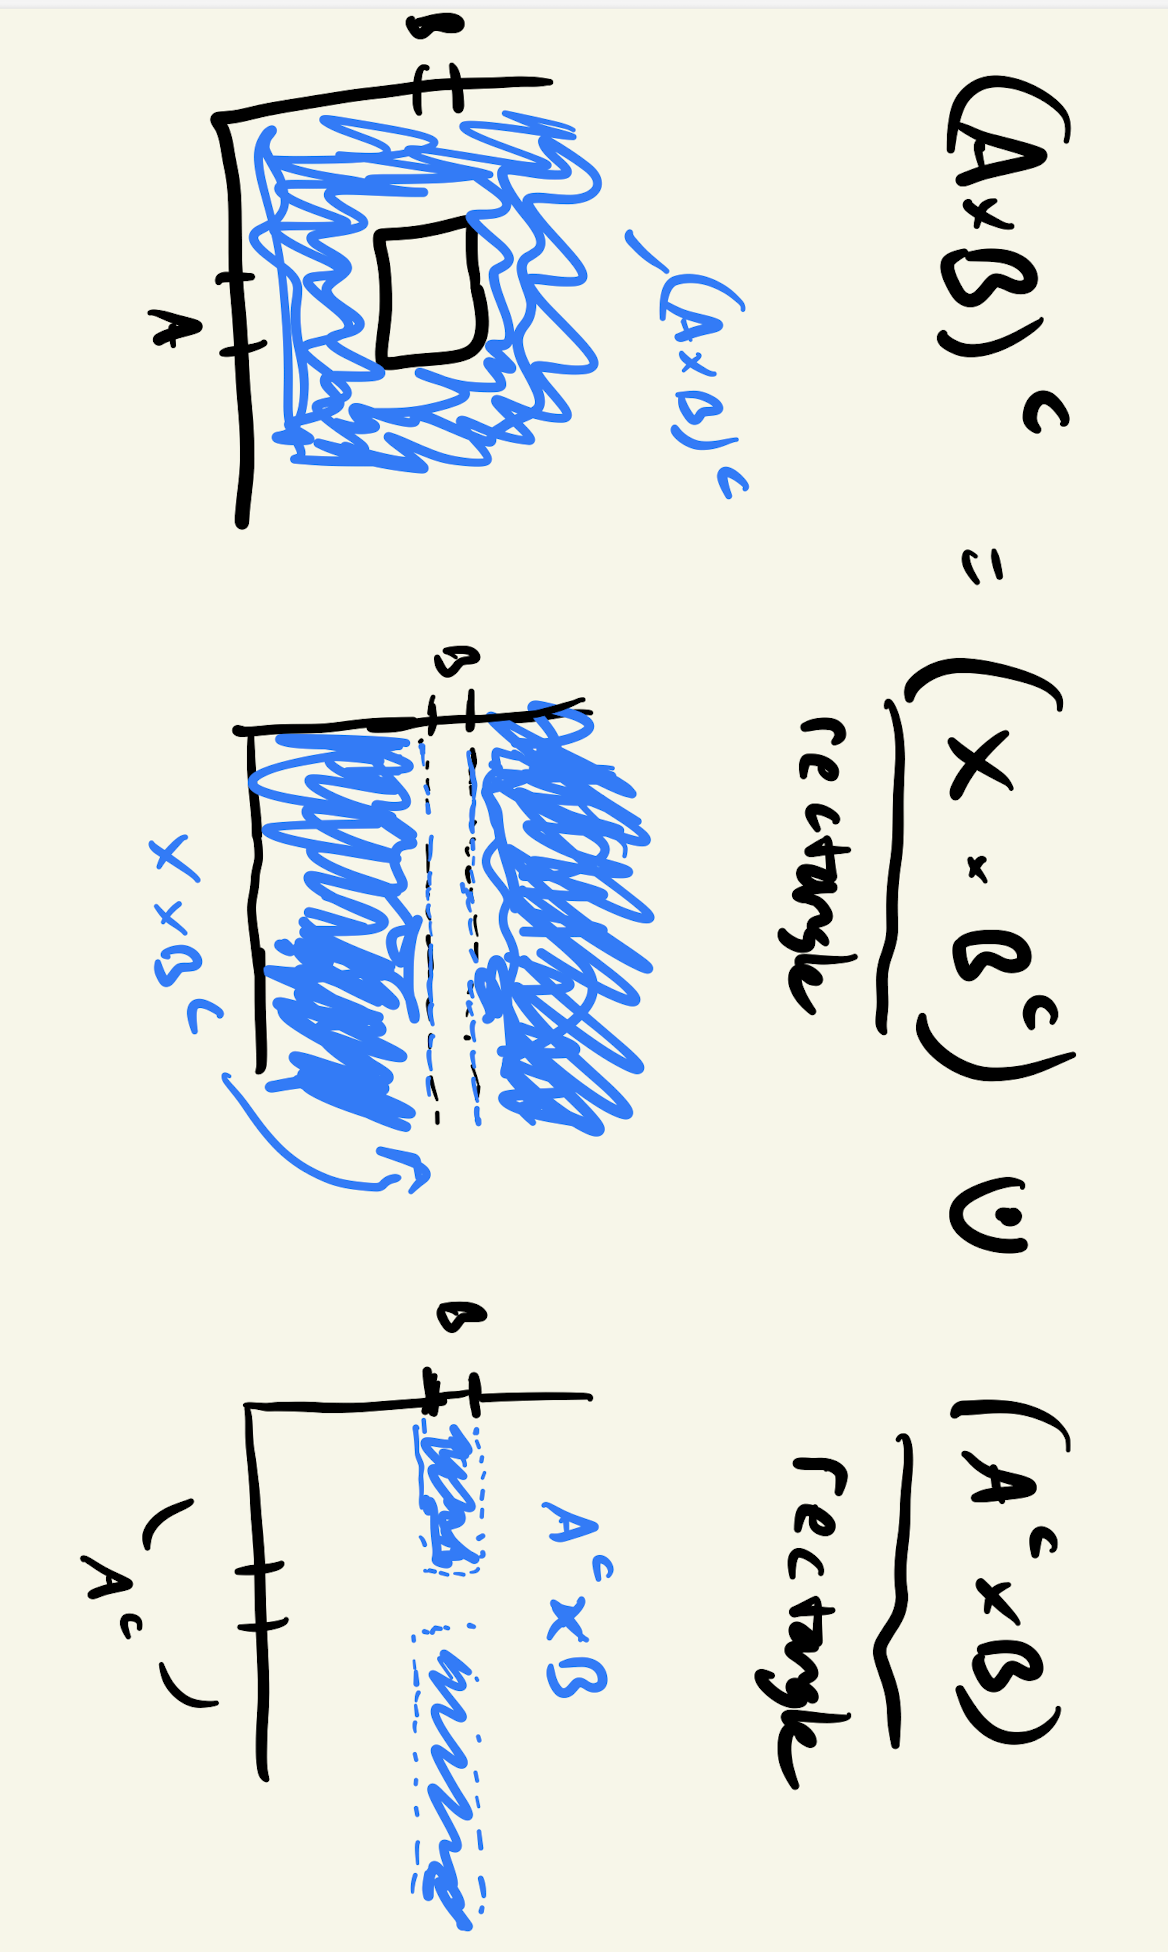 (A × B)ᶜ = (X × Bᶜ) ⊍ (Aᶜ × B)
rectangle rectangle
(A × B)ᶜ
Aᶜ × B
B B B
A
X × Bᶜ
( Aᶜ )